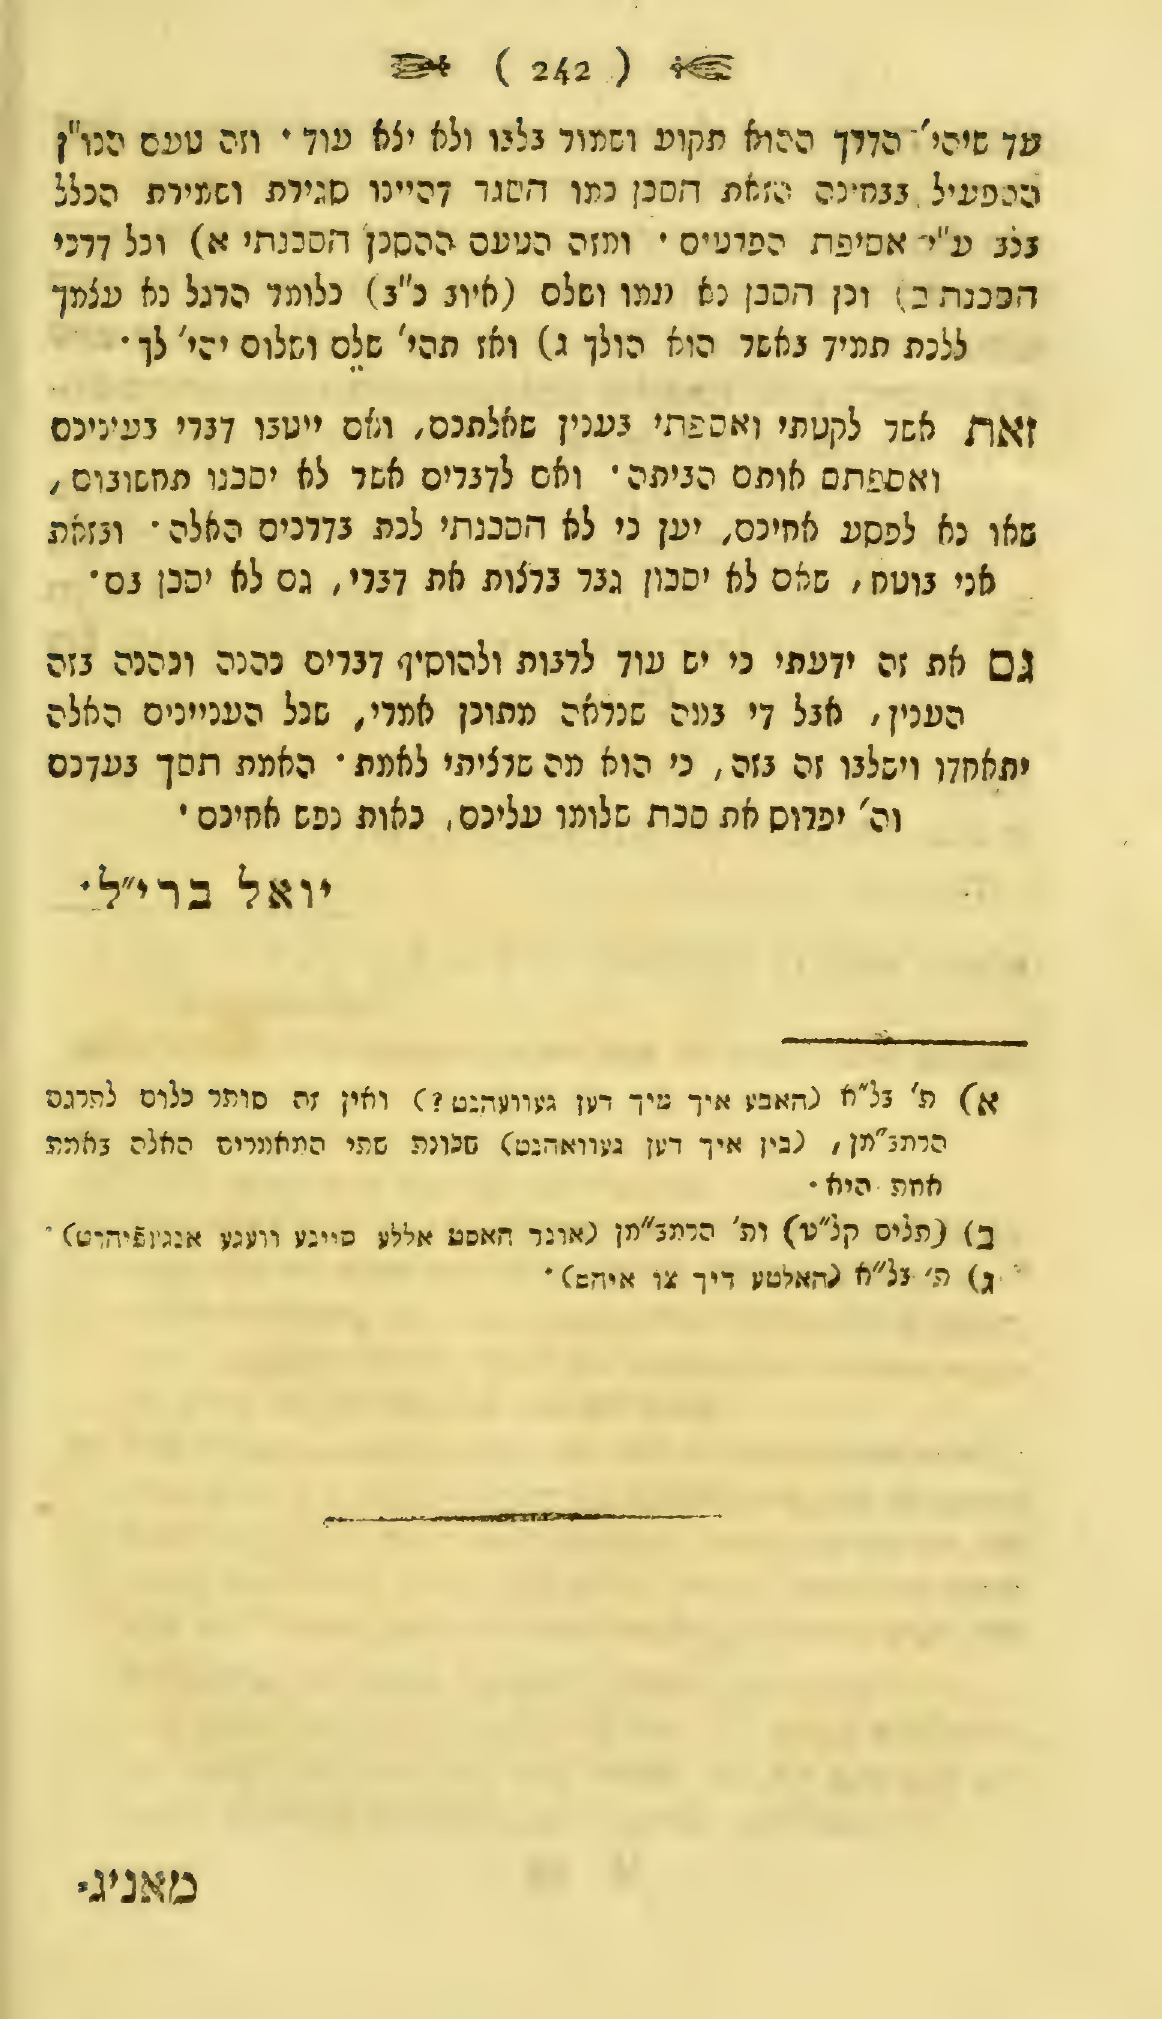 ( 242 )
עד שיהי' הדרך ההוא תקוע ושמור בלבו ולא יצא עוד • וזה טעם הנו"ן
ההפעיל בבחינה הזאת הסכן כמו הסגר דהיינו סגירת ושמירת הכלל
בלב ע"י אסיפת הפרטים • ומזה הטעם ההסכן הסכנתי א) וכל דרכי
הסכנת ב) וכן הסכן נא עמו ושלם (איוב כ"ב) כלומר הרגל נא עצמך
ללכת תמיד באשר הוא הולך ג) ואז תהי' שלם ושלום יהי' לך •
זאת אשר לקטתי ואספתי בענין שאלתכם, ואם ייטבו דברי בעיניכם
ואספתם אותם הביתה • ואם לדברים אשר לא יסכנו תחשובום,
שאו נא לפשע אחיכם, יען כי לא הסכנתי לכת בדרכים האלה • ובזאת
אני בוטח, שאם לא יסכון גבר ברצות את דברי, גם לא יסכן בם •
גם את זה ידעתי כי יש עוד לרבות ולהוסיף דברים כהנה וכהנה בזה
הענין, אבל די במה שנראה מתוכן אמרי, שכל העניינים האלה
יתאחדו וישלבו זה בזה, כי הוא מה שרציתי לאמת • האמת תסך בעדכם
וה' יפרוס את סכת שלומו עליכם, כאות נפש אחיכם •
יואל ברי"ל •
א) ת' בל"א (האבע איך מיך דען געוועהנט?) ואין זה סותר כלום לתרגם
הרמב"מן, (בין איך דען געוואהנט) שכונת שתי המאמרים האלה באמת
אחת היא •
ב) (תלים קל"ט) ות' הרמב"מן (אונד האסט אללע מיינע וועגע אנגעפיהרט) •
ג) ת' בל"א (האלטע דיך צו איהם) •
מאניג-